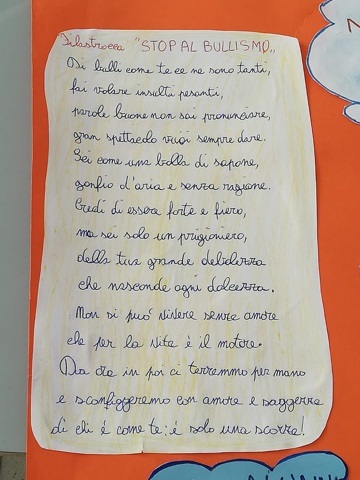 Filastrocca "STOP AL BULLISMO„
Di bulli come te ce ne sono tanti,
fai volare insulti pesanti,
parole buone non sai pronunciare,
gran spettacolo vuoi sempre dare.
Sei come una bolla di sapone,
gonfio d'aria e senza ragione.
Credi di essere forte e fiero,
ma sei solo un prigioniero,
della tua grande debolezza
che nasconde ogni dolcezza.
Non si può vivere senza amore
che per la vita è il motore.
Da ora in poi ci terremmo per mano
e sconfiggeremo con amore e saggezza
di chi è come te: è solo una scorza!